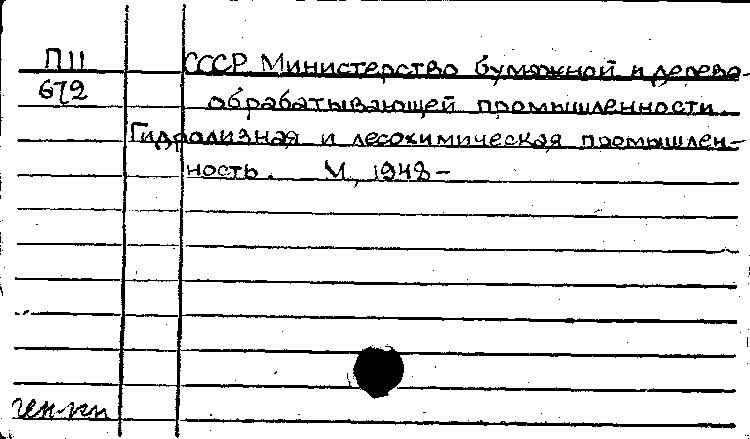 П11
672
СССР Министерство бумажной и дерево-
обрабатывающей промышленности.
Гидролизная и лесохимическая промышлен-
ность. М., 1948-